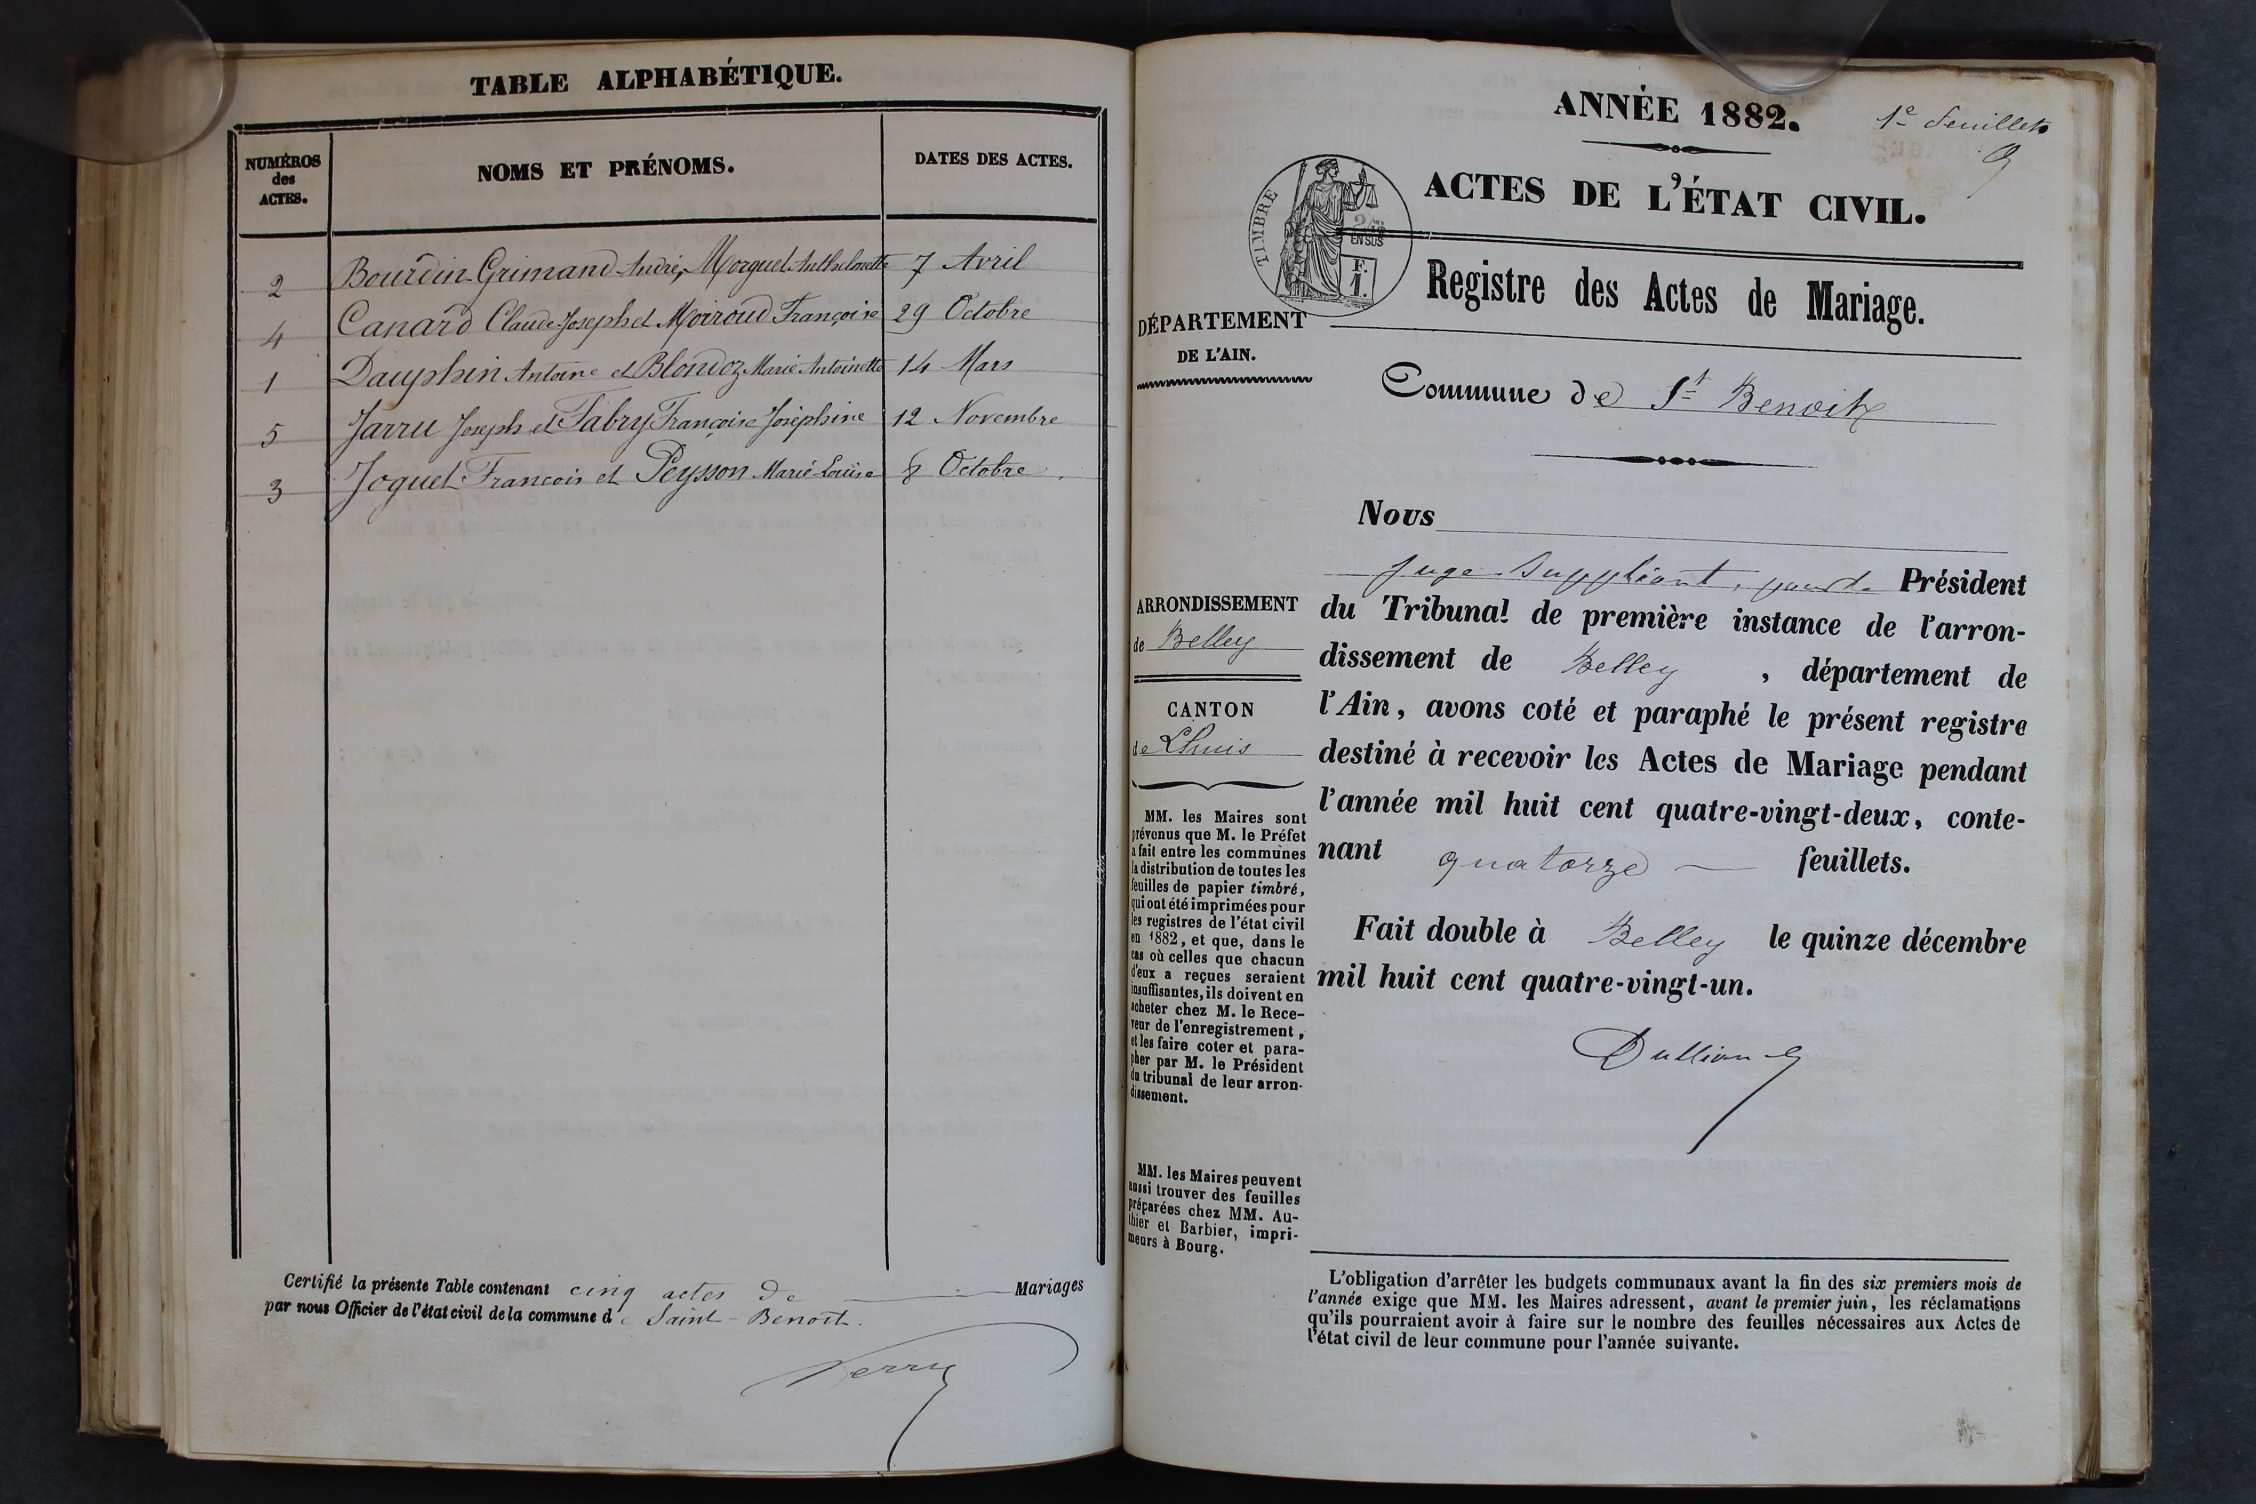 TABLE ALPHABÉTIQUE.
NUMÉROS des ACTES.
NOMS ET PRÉNOMS.
DATES DES ACTES.
2 Bourdin-Grimand André, Morguet Anthelmette 7 Avril
4 Canard Claude-Joseph et Moiroud Françoise 29 Octobre
1 Dauphin Antoine et Blondoz Marie Antoinette 14 Mars
5 Jarru Joseph et Fabry Françoise Joséphine 12 Novembre
3 Joguet François et Peysson Marie Louise 8 Octobre
Certifié la présente Table contenant cinq actes de Mariages
par nous Officier de l'état civil de la commune de Saint-Benoit.
Perry
ANNÉE 1882.
1e feuillet
ACTES DE L'ÉTAT CIVIL.
TIMBRE
2/10 EN SUS
F. 1.
Registre des Actes de Mariage.
DÉPARTEMENT
DE L'AIN.
Commune de St Benoit
Nous
juge suppléant, pour le Président
du Tribunal de première instance de l'arron-
dissement de Belley, département de
l'Ain, avons coté et paraphé le présent registre
destiné à recevoir les Actes de Mariage pendant
l'année mil huit cent quatre-vingt-deux, conte-
nant quatorze feuillets.
Fait double à Belley le quinze décembre
mil huit cent quatre-vingt-un.
Dullion
ARRONDISSEMENT
de Belley
CANTON
de Lhuis
MM. les Maires sont
prévenus que M. le Préfet
a fait entre les communes
la distribution de toutes les
feuilles de papier timbré,
qui ont été imprimées pour
les registres de l'état civil
en 1882, et que, dans le
cas où celles que chacun
d'eux a reçues seraient
insuffisantes, ils doivent en
acheter chez M. le Rece-
veur de l'enregistrement,
et les faire coter et para-
pher par M. le Président
du tribunal de leur arron-
dissement.
MM. les Maires peuvent
aussi trouver des feuilles
préparées chez MM. Au-
thier et Barbier, impri-
meurs à Bourg.
L'obligation d'arrêter les budgets communaux avant la fin des six premiers mois de
l'année exige que MM. les Maires adressent, avant le premier juin, les réclamations
qu'ils pourraient avoir à faire sur le nombre des feuilles nécessaires aux Actes de
l'état civil de leur commune pour l'année suivante.